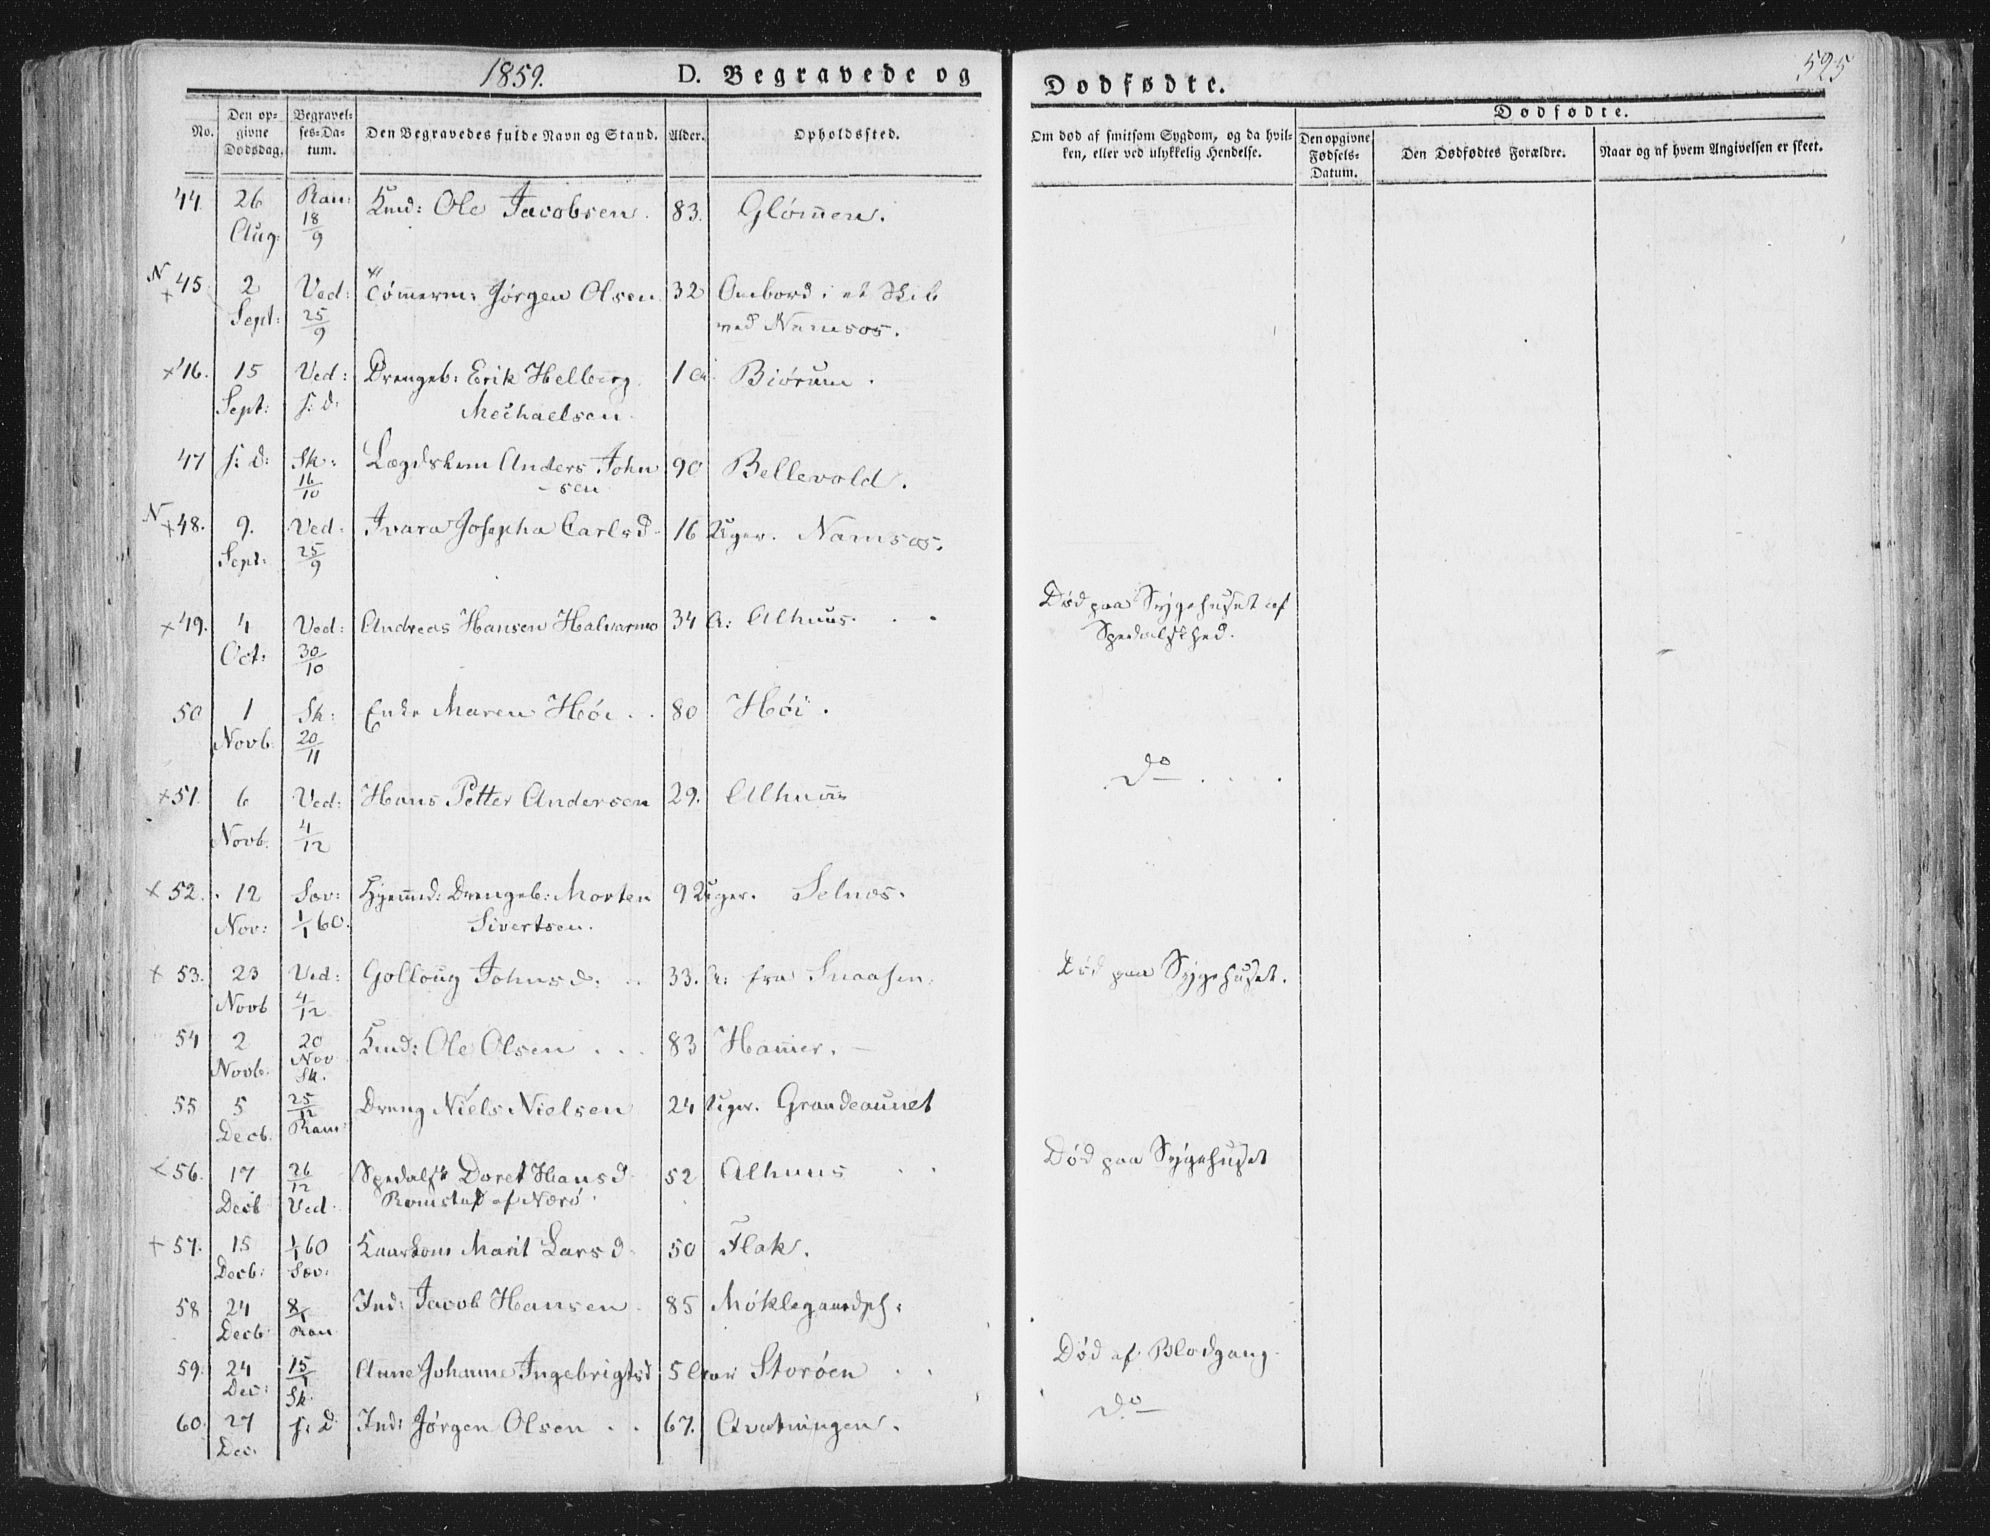 1859.
D. Begravede og
Dodfødte.
525
No.
Den op-
givne
Dodsdag.
Begravel-
ses-Da-
tum.
Den Begravedes fulde Navn og Stand.
Alder.
Opholdssted.
Om dod af smitsom Sygdom, og da hvil-
ken, eller ved ulykkelig Hendelse.
Dodfødte.
Den opgivne
Fødsels-
Datum.
Den Dødfødtes Forældre.
Naar og af hvem Angivelsen er skeet.
44. 26 Ran: Ole Jacobsen. 83. Glömen.
Aug: 18/9
N
+45. 2 Ved: Tömerm: Jörgen Olsen 32 Ombord i et Skib
Sept: 25/9 ved Namsos.
+46. 15 Ved: Drengeb: Erik Helberg 1 Biörum.
Sept: s: d: Mechaelsen.
47 s: d: Sk: Lægdslem Anders John 90 Bellevold.
16/10 -sen
N
+48. 9. Ved: Ivara Josepha Carlsd. 16 Uger. Namsos.
Sept: 25/9
+49. 4 Ved: Andreas Hansen Halvarmo 34 A: Alhuus. Död paa Sygehuset af
Oct: 30/10 Spedalskhed.
50 1 Sk: Enke Maren Höi . . 80 Höi.
Novb. 20/11
+51. 6 Ved: Hans Petter Andersen 29. Alhuus Do
Novb. 4/12
+52. 12 Sæv: Drengeb: Morten 9 Uger. Selnæs.
Nov: 1/1 60. Sivertsen.
+53. 23 Ved: Golloug Johnsd: 33. A: fra Snaasen. Död paa Sygehuset.
Novb 4/12
54 2 20 Ole Olsen . . . 83 Hamer.
Novb. Nov
Sk.
55 5 25/12 Dreng Niels Nielsen 24 Uger. Grandeaunet
Decb. Ran:
+56. 17 26/12 Spedalsk Doret Hansd. 52 Alhuus Död paa Sygehuset
Decb Ved. Romstad af Nærö.
+57. 15 1/1 60 Marit Larsd. 50 Flak.
Decb: Sæv:
58 24 8/1 Ind: Jacob Hansen. 85 Möklegaardspl:
Decb Ran
59. 24 15/1 Anne Johanne Ingebrigtsd 5 Storöen Död af Blodgang.
Dec: Sk.
60. 27 s: d Ind: Jörgen Olsen . . 67. Do
Dec.